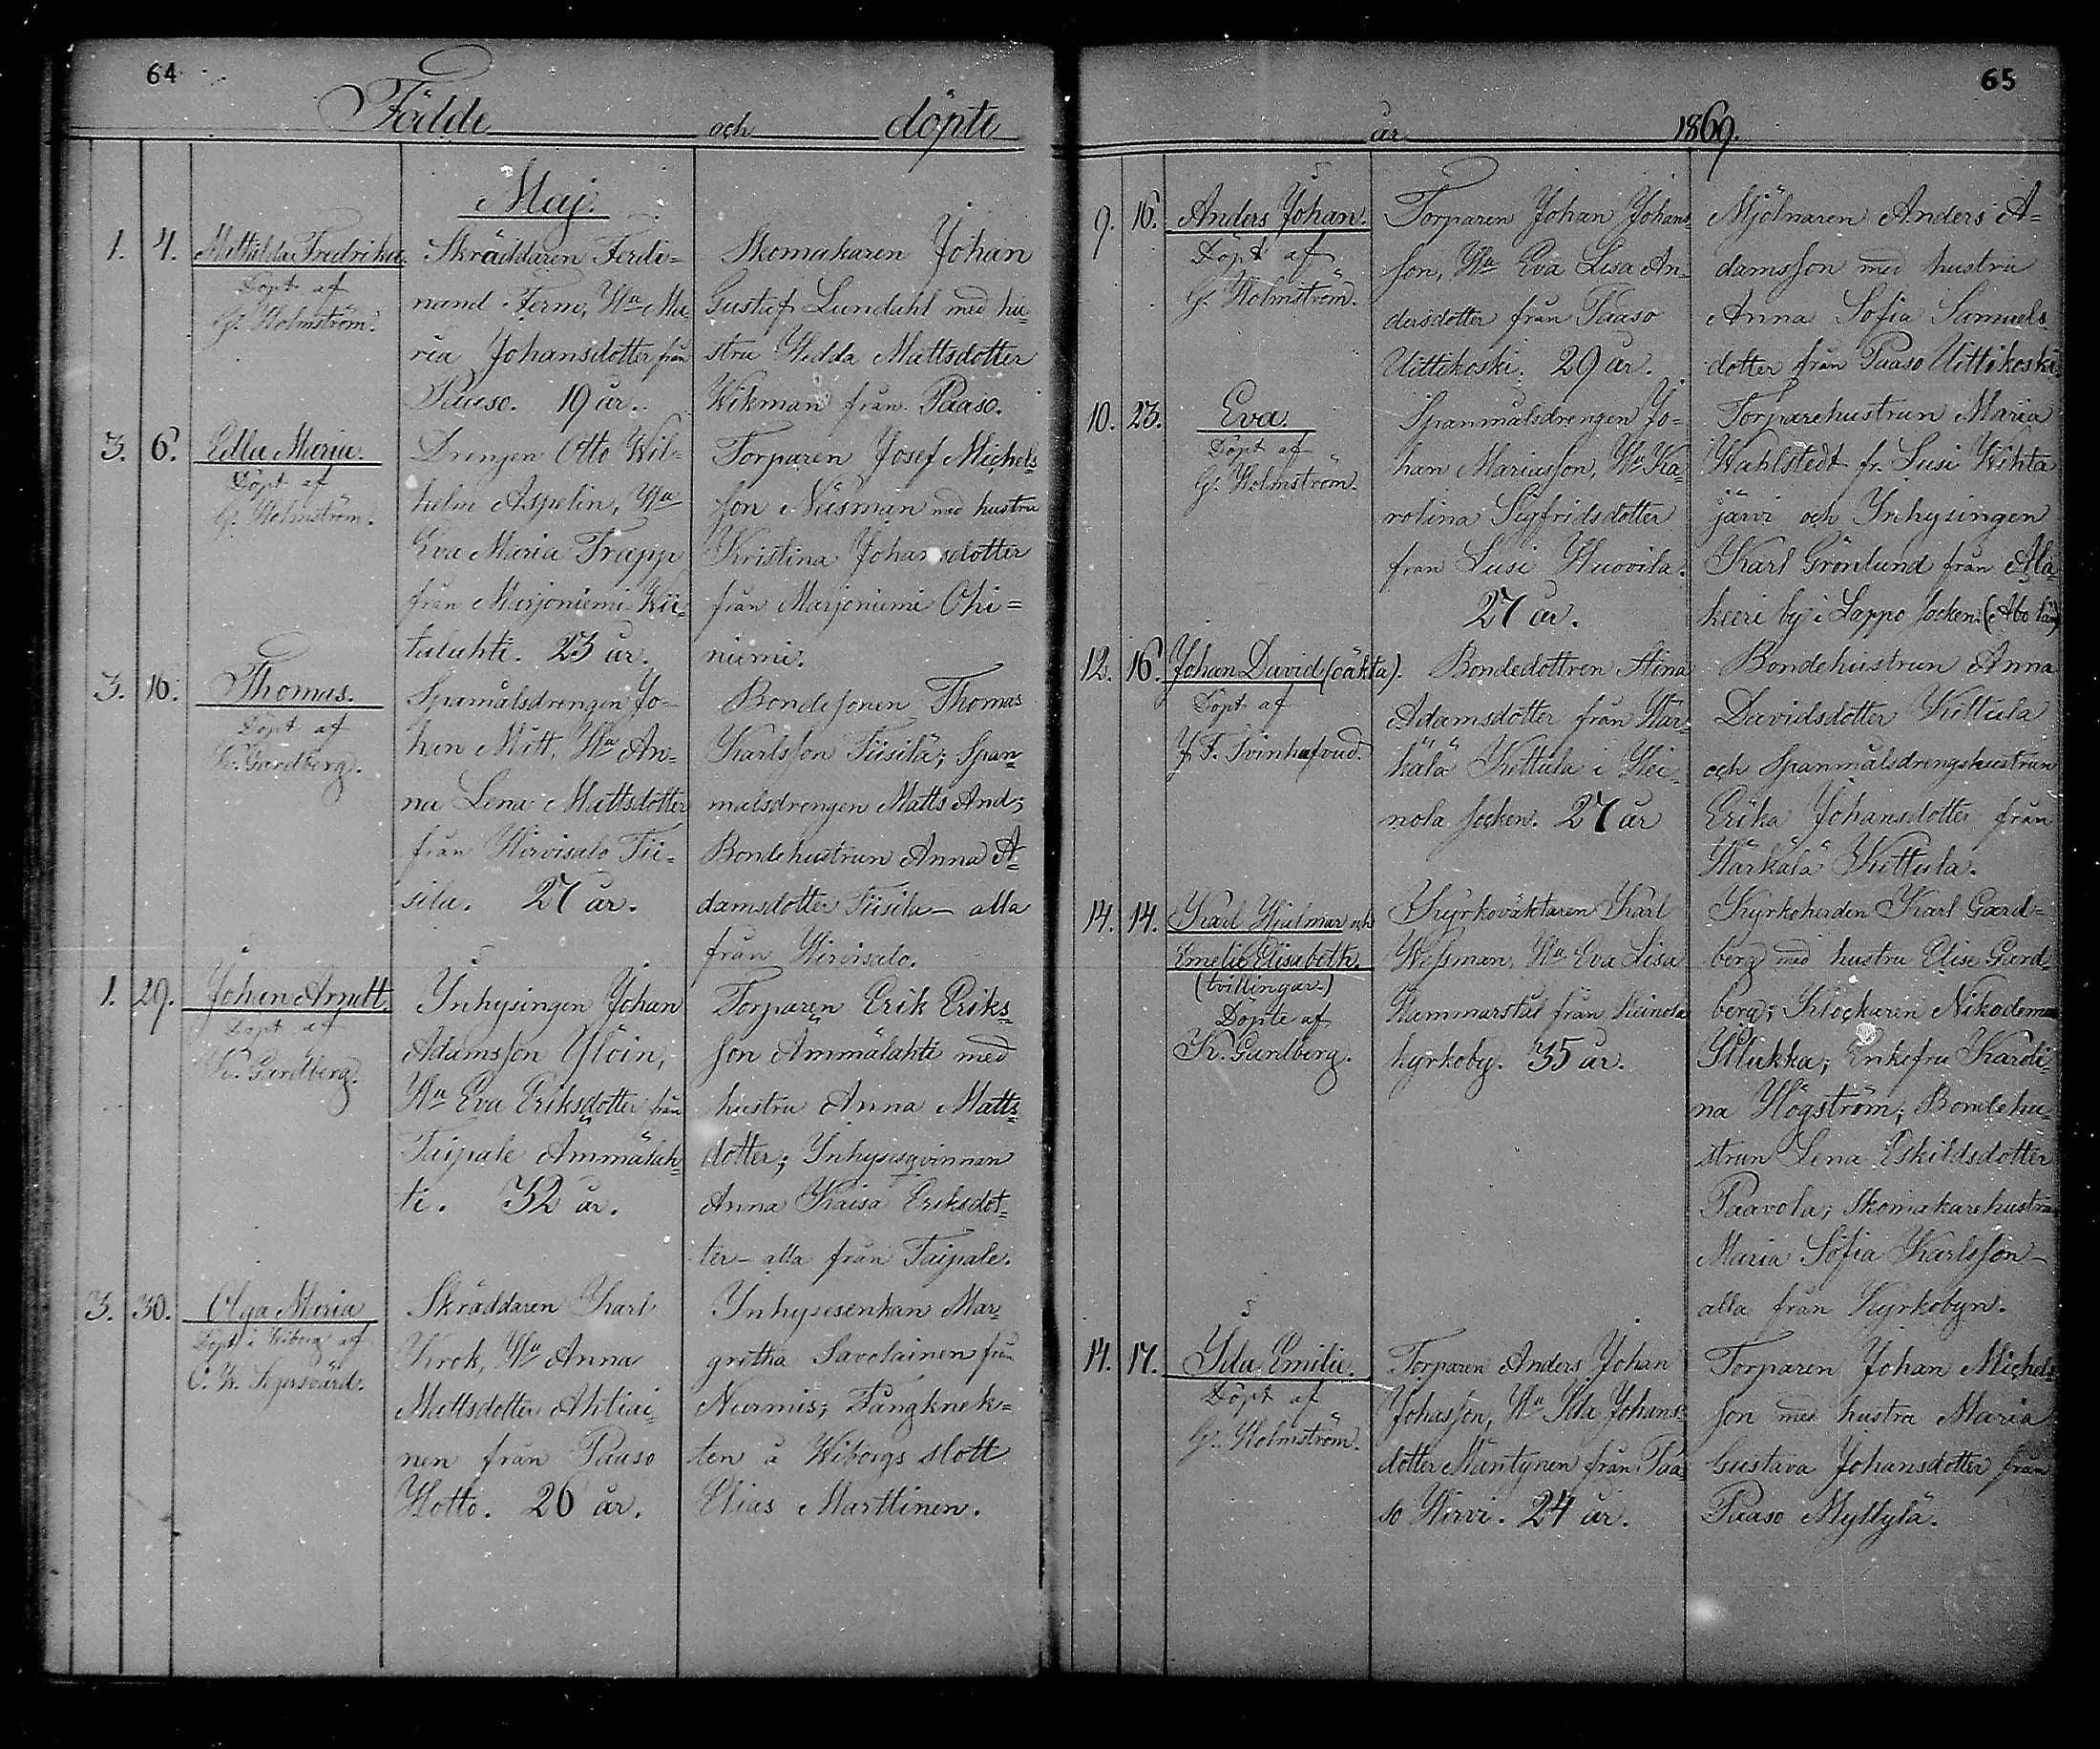 64
Födde och döpte
Maj.
1. 4. Mathilda Fredrika.
Döpt af
G. Holmström.
Skräddaren Ferdi=
nand Ferm, Hu Ma-
ria Johansdotter från
Paaso. 19 år.
Skomakaren Johan
Gustaf Lundahl med hu-
stru Hedda Mattsdotter
Wikman från Paaso.
3. 6. Edla Maria.
Döpt af
G. Holmström.
Drengen Otto Wil-
helm Aspelin, Hu
Eva Maria Trupp
från Marjoniemi Wii-
taluhti. 23 år.
Torparen Josef Michels-
son Näsman med hustru
Kristina Johansdotter
från Marjoniemi Ohi=
niemi.
3. 16. Thomas.
Döpt af
K. Gardberg.
Spamålsdrengen Jo-
han Mått, Hu An-
na Lena Mattsdotter
från Hirvisalo Tii-
sila. 27 år.
Bondesonen Thomas
Karlsson Tiisilä; Span-
målsdrengen Matts And;
Bondehustrun Anna A-
damsdotter Tiisila – alla
från Hirvisalo.
1. 29. Johan Arvitt.
Döpt af
K. Gardberg.
Ynhysingen Johan
Adamsson Ylöin,
Hu Eva Eriksdotter från
Taipale Ämmälah-
ti. 32 år.
Torparen Erik Eriks-
son Ämmälahti med
hustru Anna Matts-
dotter; Ynhysesqvinnan
Anna Kaisa Eriksdot-
ter – alla från Taipale.
3. 30. Olga Maria
Döpt i Wiborg af
O. W. Segersvärd.
Skräddaren Karl
Krok, Hu Anna
Mattsdotter Ahtiai-
nen från Paaso
Hotto. 26 år.
Ynhysesenkan Mar-
gretha Savolainen från
Nurmis; Fångknek=
ten å Wiborgs slott
Elias Marttinen.
65
år 1869.
9. 16. Anders Johan.
Döpt af
G. Holmström.
Torparen Johan Johans-
son, Hu Eva Lisa An-
dersdotter från Paaso
Uittikoski. 29 år.
Mjölnaren Anders A=
damsson med hustru
Anna Sofia Samuels-
dotter från Paaso Uittikoski.
10. 23. Eva.
Döpt af
G. Holmström.
Spanmålsdrengen Jo=
han Mariasson, Hu Ka-
rolina Sigfridsdotter
från Lusi Huovila.
27 år.
Torparehustrun Maria
Wahlstedt fr. Lusi Wihta
järvi och Ynhysingen
Karl Grönlund från Ala-
keeri by i Lappo socken. (Åbo län)
12. 16. Johan David (oäkta).
Döpt af
J. F. Svinhufvud.
Bondedottren Stina
Adamsdotter från Här-
kälä Kettula i Hei-
nola socken. 27 år
Bondehustrun Anna
Davidsdotter Kettula
och Spanmålsdrengshustrun
Erika Johansdotter från
Härkälä Kettula.
14. 14. Karl Hjalmar och
Emelie Elisabeth.
(tvillingar.)
Döpte af
K. Gardberg.
Kyrkoväktaren Karl
Wessman, Hu Eva Lisa
Hammarstål från Heinola
kyrkoby. 35 år.
Kyrkoherden Karl Gard=
berg med hustru Elise Gard-
berg; Klockaren Nikodemus
Hlukka; Enkefru Karoli-
na Högström; Bondehu-
strun Lena Eskildsdotter
Paavola; Skomakarehustrun
Maria Sofia Karlsson –
alla från Kyrkobyn.
14. 17. Ida Emilie.
Döpt af
G. Holmström.
Torparen Anders Johan
Johasson, Hu Ida Johans-
dotter Mäntynen från Paa-
so Hirvi. 24 år.
Torparen Johan Michels-
son med hustru Maria
Gustava Johansdotter från
Paaso Myllylä.